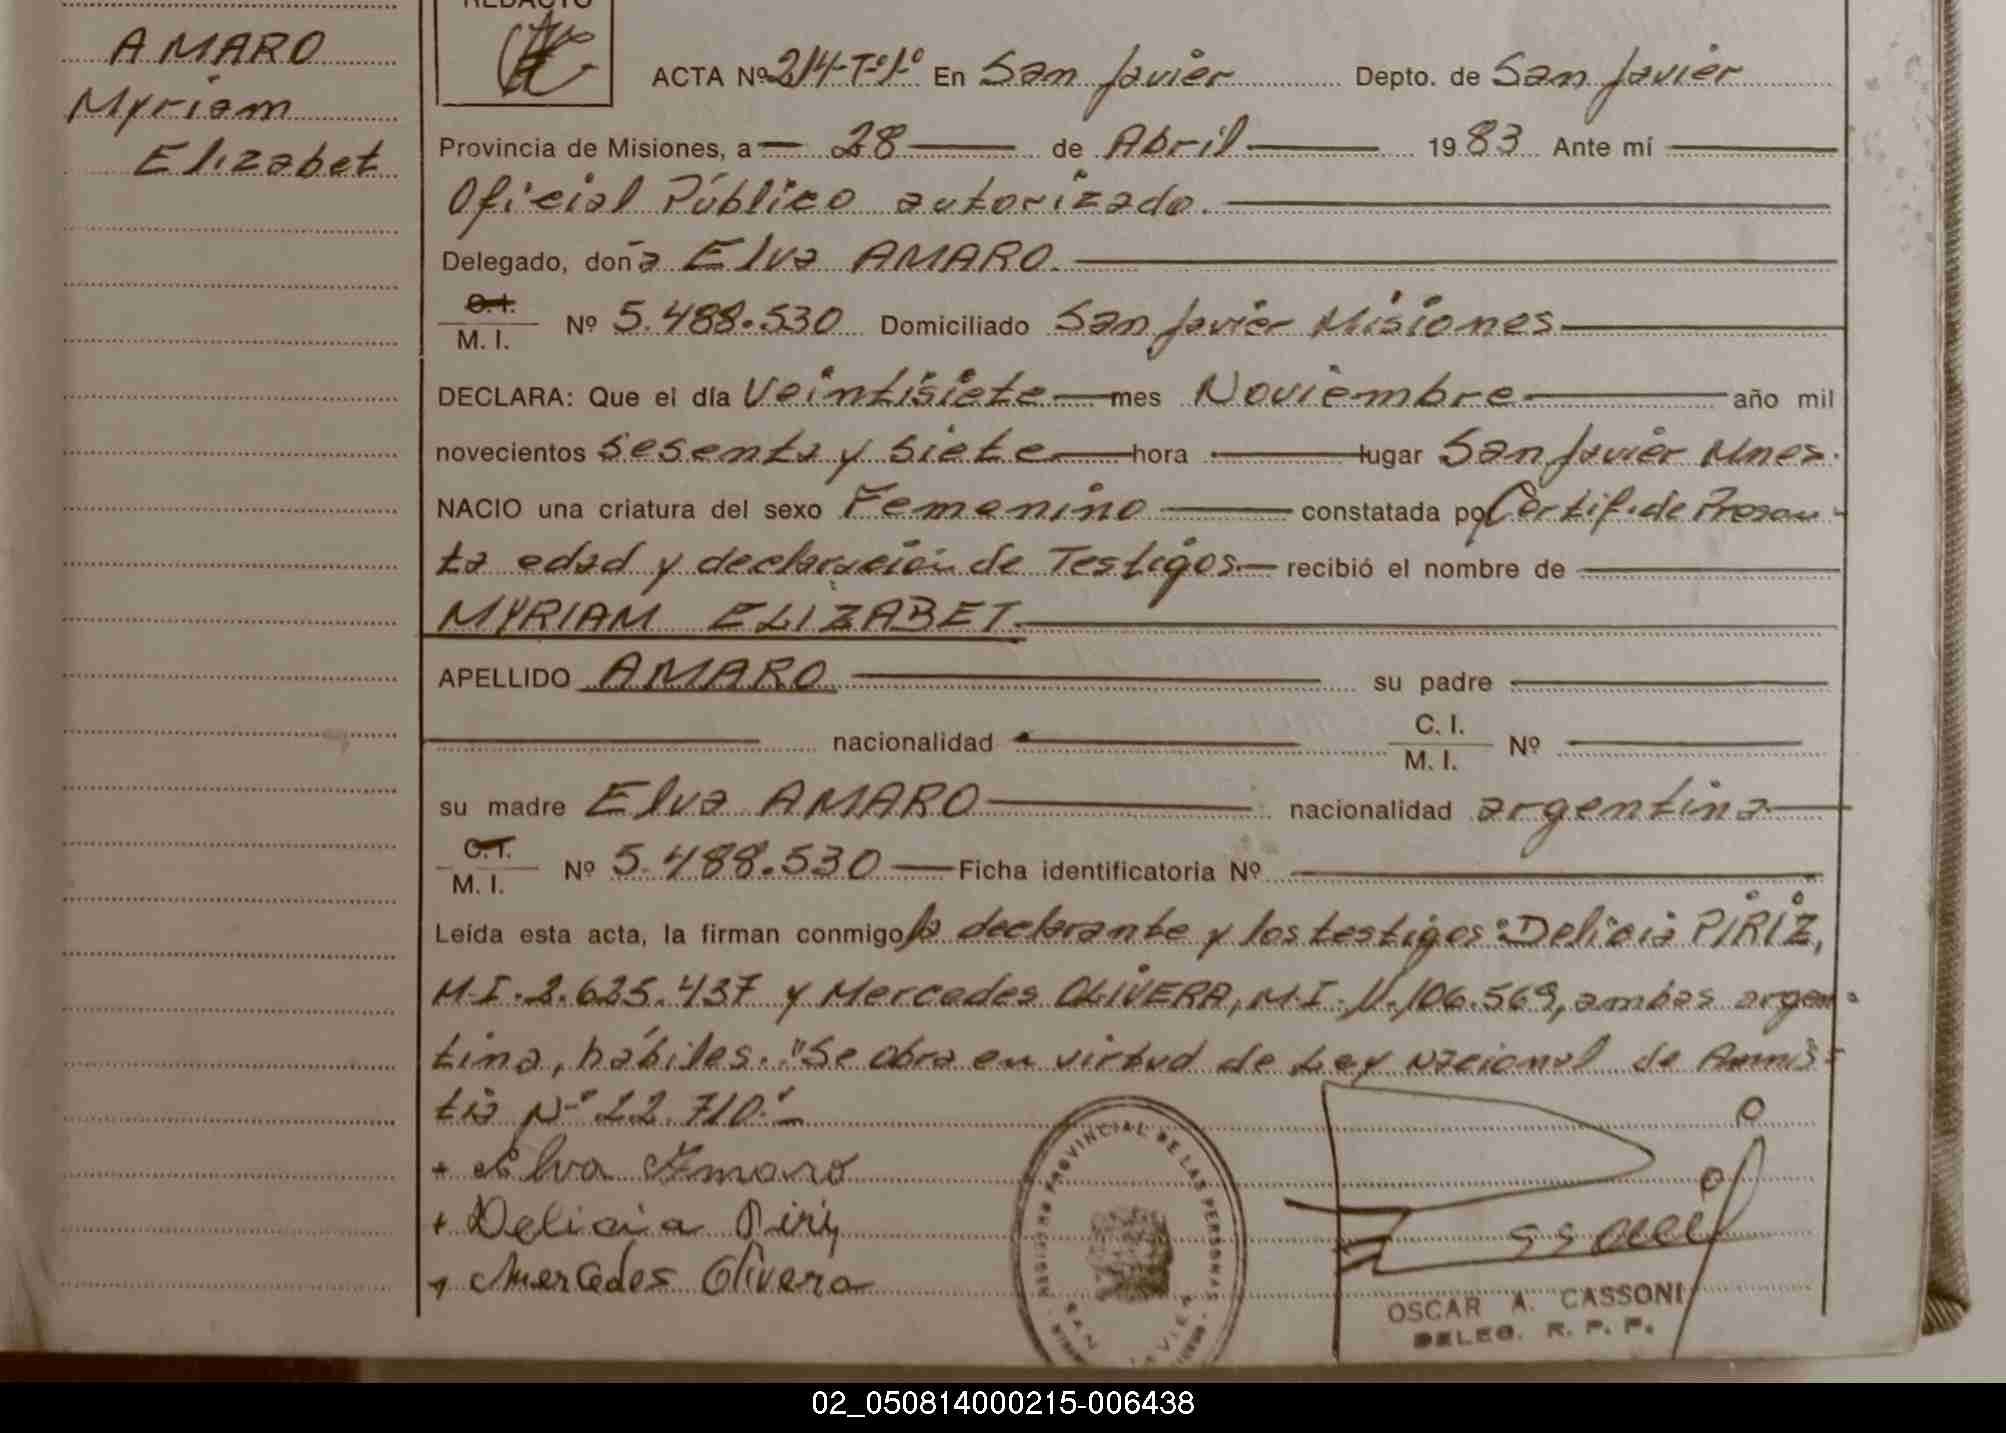 REDACTO
AMARO
Myriam
Elizabet
ACTA Nº 214-Tº1º En San Javier Depto. de San Javier
Provincia de Misiones, a 28 de Abril 1983 Ante mí
Oficial Público autorizado.
Delegado, doña Elva AMARO.
C.I.
M. I. Nº 5.488.530 Domiciliado San Javier Misiones
DECLARA: Que el día Veintisiete mes Noviembre año mil
novecientos sesenta y siete hora lugar San Javier Mnes.
NACIO una criatura del sexo Femenino constatada por Certif. de Presun-
ta edad y declaración de Testigos recibió el nombre de
MYRIAM ELIZABET.
APELLIDO AMARO su padre
nacionalidad C. I.
M. I. Nº
su madre Elva AMARO nacionalidad argentina
C.I.
M. I. Nº 5.488.530 Ficha identificatoria Nº
Leída esta acta, la firman conmigo la declarante y los testigos: Delicia PIRIZ,
M.I. 2.625.437 y Mercedes OLIVERA, M.I. 11.106.569, ambas argen-
tina, hábiles. "Se obra en virtud de Ley Nacional de Amnis-
tia Nº 22.710."
+ Elva Amaro
+ Delicia Piriz
+ Mercedes Olivera
REGISTRO PROVINCIAL DE LAS PERSONAS
SAN JAVIER
OSCAR A. CASSONI
DELEG. R. P. P.
02_050814000215-006438